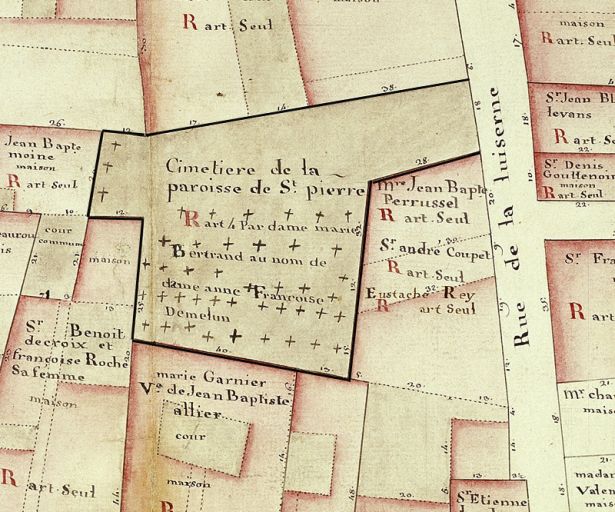 maison
R art. Seul
maison
R art. Seul
Jean Bapte
moine
maison
R art Seul
Cimetiere de la
paroisse de St. pierre
R art 4 Par dame marie
Bertrand au nom de
dame anne Francoise
Demelun
Mre Jean Bapte
Perrussel
R art. Seul
Sr. andré Coupet
R art. Seul
Eustache Rey
R art Seul
Rue de la luiserne
Sr. Jean Bl
levans
R art. Se
Sr. Denis
Gouttenoir
maison
R art. Seul
cour
commun
maison
Sr. Benoit
decroix et
françoise Roche
Sa femme
maison
R art. Seul
marie Garnier
Ve. de Jean Baptiste
allier
cour
maison
R
Sr. Fra
R art
Mr. cha
mais
madar
Valen
mais
St Etienne